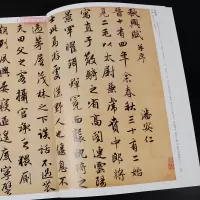 秋興賦 并序
潘安仁
晉十有四年余春秋三十有二始
見二毛以太尉掾兼虎賁中郎將
寓直于散騎之省高閣連雲陽
景罕曜珥蟬冕而襲紈綺之士
此焉游處僕野人也偃息不
過茅屋茂林之下談話不過農
夫田父之客攝官承乏猥廁
朝列夙興晏寢匪遑底寧譬